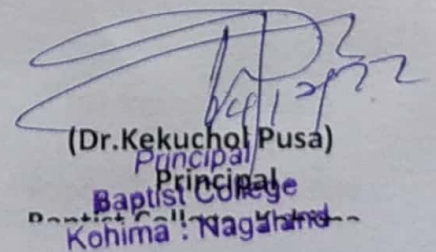 (Dr.Kekuchol Pusa)
Principal
Principal
Baptist College
Baptist College
Kohima : Nagaland